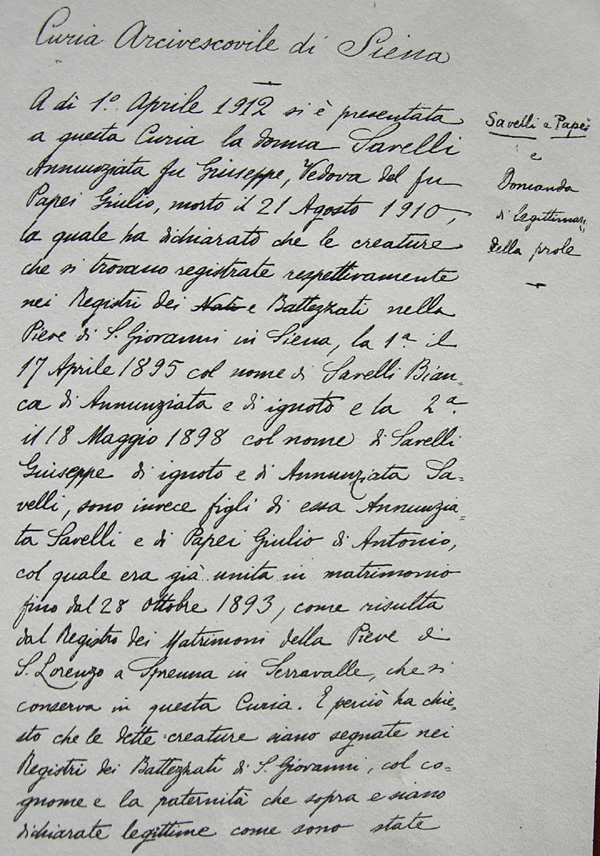 Curia Arcivescovile di Siena
A dì 1º Aprile 1912 si è presentata
a questa Curia la donna Savelli
Annunziata fu Giuseppe, Vedova del fu
Papei Giulio, morto il 21 Agosto 1910,
la quale ha dichiarato che le creature
che si trovano registrate respettivamente
nei Registri dei Nati e Battezzati nella
Pieve di S. Giovanni in Siena, la 1ª il
17 Aprile 1895 col nome di Savelli Bian=
ca di Annunziata e di ignoto e la 2ª.
il 18 Maggio 1898 col nome di Savelli
Giuseppe di ignoto e di Annunziata Sa=
velli, sono invece figli di essa Annunzia=
ta Savelli e di Papei Giulio di Antonio,
col quale era già unita in matrimonio
fino dal 28 Ottobre 1893, come risulta
dal Registro dei Matrimoni della Pieve di
S. Lorenzo a in Serravalle, che si
conserva in questa Curia. E perciò ha chie=
sto che le dette creature siano segnate nei
Registri dei Battezzati di S. Giovanni, col co=
gnome e la paternità che sopra e siano
dichiarate legittime come sono state
Savelli e Papei
e
Domanda
di
della prole